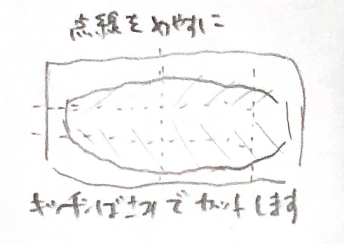 点線をめやすに
キッチンばさみでカットします